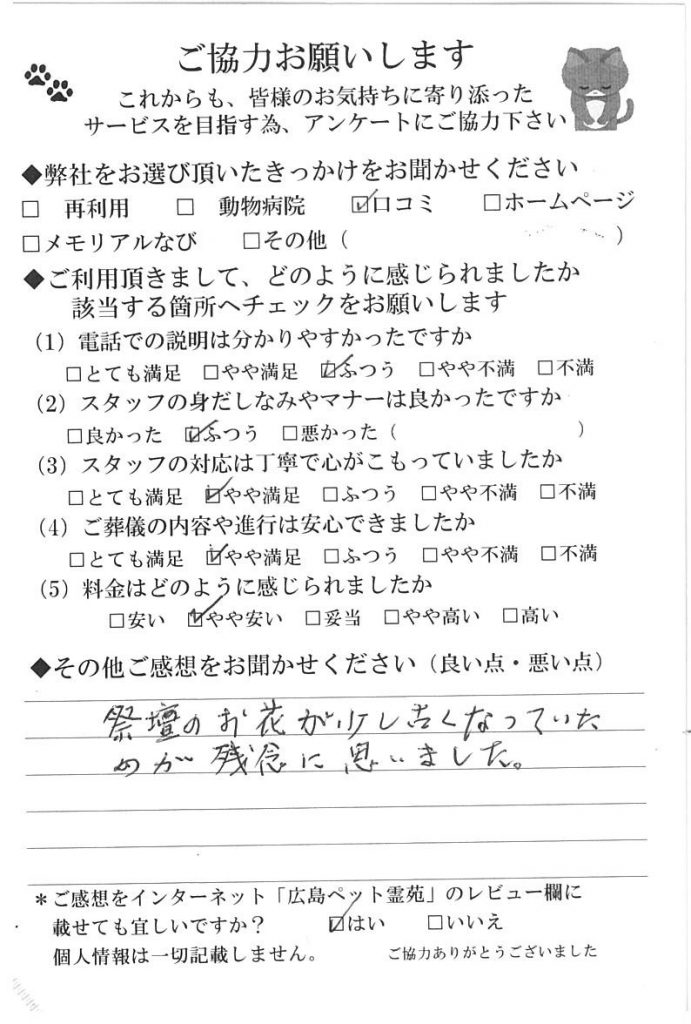 ご協力お願いします
これからも、皆様のお気持ちに寄り添った
サービスを目指す為、アンケートにご協力下さい
◆弊社をお選び頂いたきっかけをお聞かせください
□ 再利用 □ 動物病院 ☑口コミ □ホームページ
□メモリアルなび □その他( )
◆ご利用頂きまして、どのように感じられましたか
該当する箇所へチェックをお願いします
(1)電話での説明は分かりやすかったですか
□とても満足 □やや満足 ☑ふつう □やや不満 □不満
(2)スタッフの身だしなみやマナーは良かったですか
□良かった ☑ふつう □悪かった( )
(3)スタッフの対応は丁寧で心がこもっていましたか
□とても満足 ☑やや満足 □ふつう □やや不満 □不満
(4)ご葬儀の内容や進行は安心できましたか
□とても満足 ☑やや満足 □ふつう □やや不満 □不満
(5)料金はどのように感じられましたか
□安い ☑やや安い □妥当 □やや高い □高い
◆その他ご感想をお聞かせください(良い点・悪い点)
祭壇のお花が少し古くなっていた
のが残念に思いました。
*ご感想をインターネット「広島ペット霊苑」のレビュー欄に
載せても宜しいですか? ☑はい □いいえ
個人情報は一切記載しません。 ご協力ありがとうございました